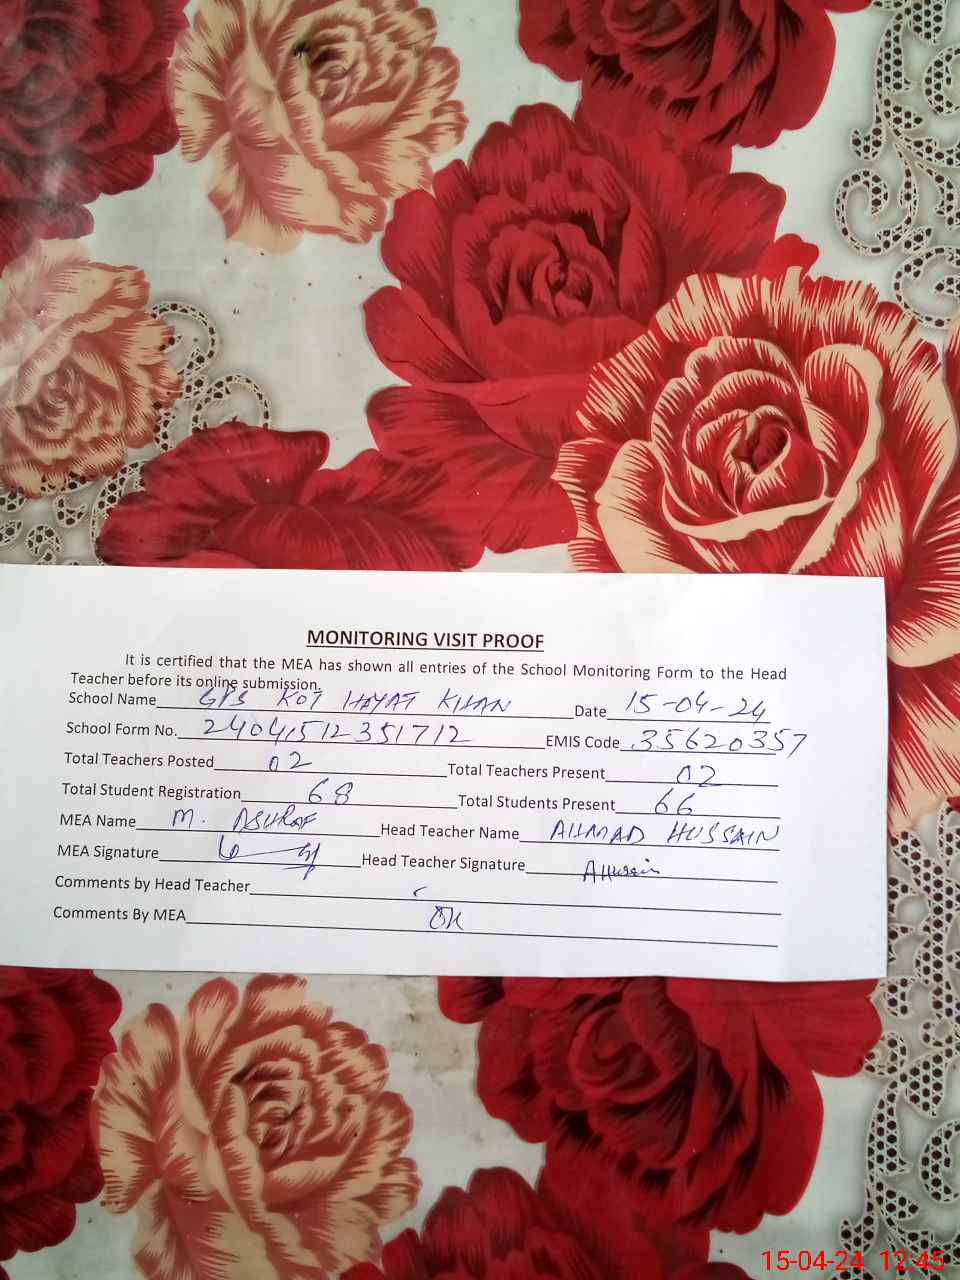 MONITORING VISIT PROOF
It is certified that the MEA has shown all entries of the School Monitoring Form to the Head
Teacher before its online submission.
School Name GPS KOT HAYAT KHAN Date 15-04-24
School Form No. 24041512351712 EMIS Code 35620357
Total Teachers Posted 02 Total Teachers Present 02
Total Student Registration 68 Total Students Present 66
MEA Name M. ASHRAF Head Teacher Name AHMAD HUSSAIN
MEA Signature Head Teacher Signature AHussain
Comments by Head Teacher
Comments By MEA OK
15-04-24 12:45